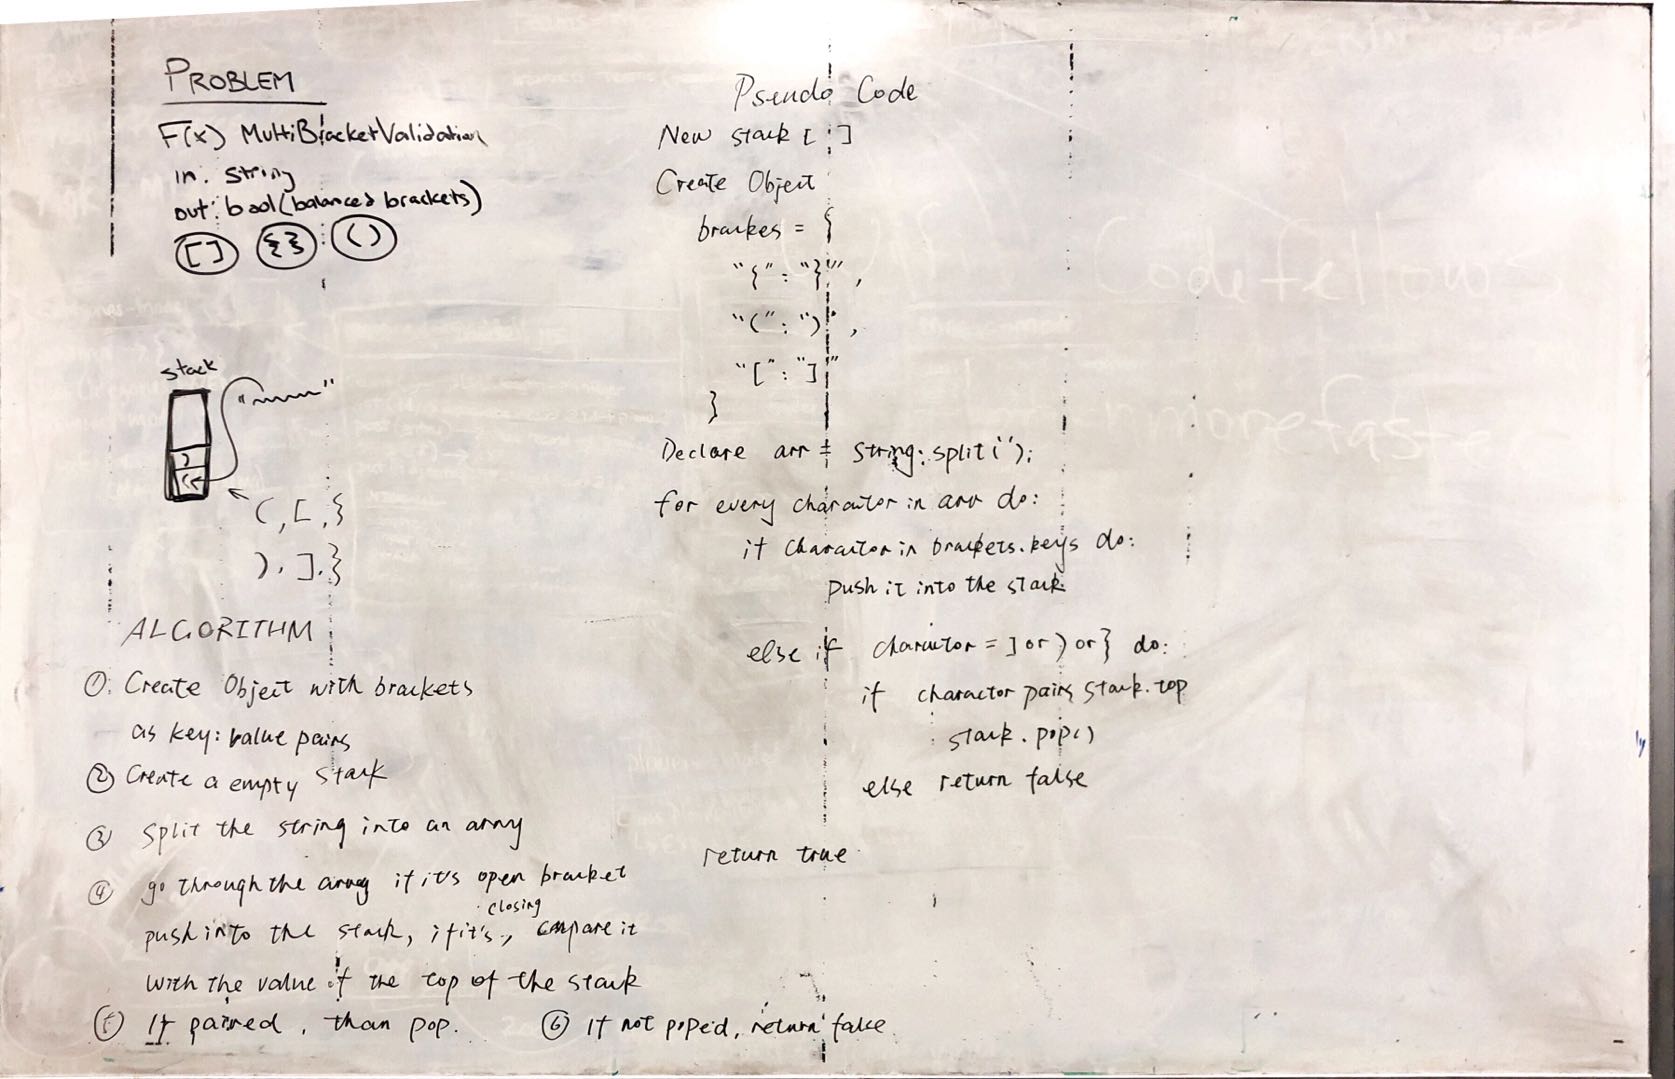 PROBLEM
F(x) MultiBracketValidation
in: string
out: bool(balanced brackets)
[] {} ()
stack
"
"
)
(
( , [ , {
) , ] , }
ALGORITHM
①: Create Object with brackets
as key: value pairs
② Create a empty stack
③ split the string into an array
④ go through the array if it's open bracket
closing
push into the stack, if it's , compare it
with the value of the top of the stack
⑤ If paired, than pop.
⑥ If not poped, return false
Pseudo Code
New stack [ ]
Create Object
brackes = {
"{" : "}" ,
"(" : ")" ,
"[" : "]"
}
Declare arr = string.split('');
for every charactor in arr do:
if charactor in brackets.keys do:
push it into the stack
else if charactor = ] or ) or } do:
if charactor pairs stack.top
stack.pop()
else return false
return true
Codefellow